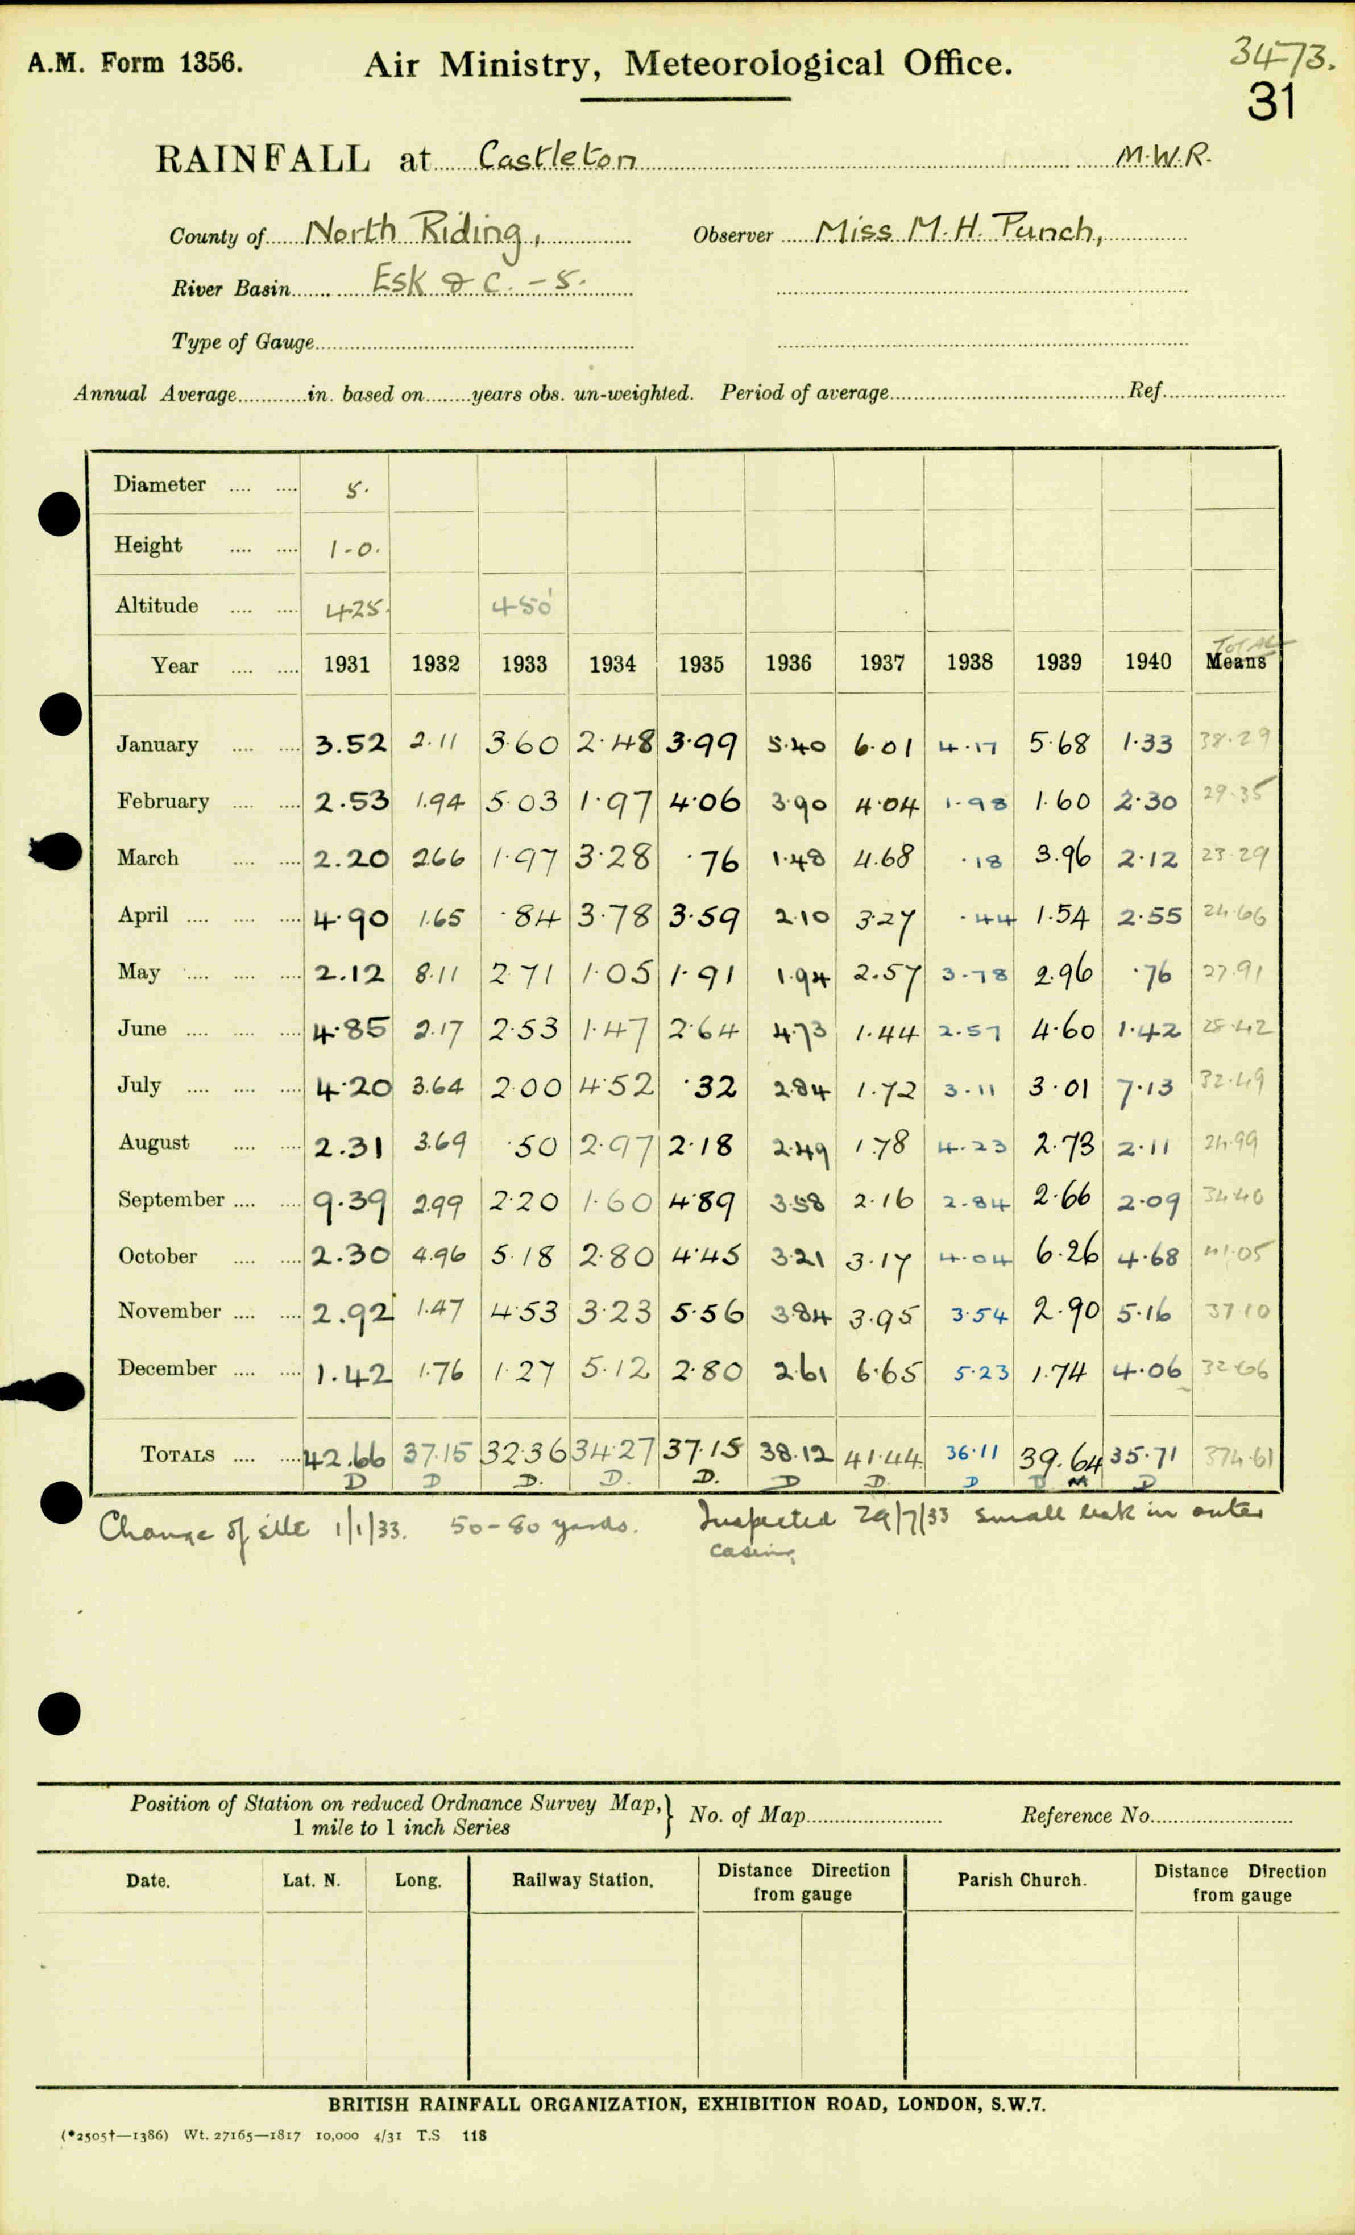 A.M. Form 1356. Air Ministry, Meteorological Office. 3473.
31
RAINFALL at Castleton M.W.R.
County of North Riding, Observer Miss M.H. Punch,
River Basin Esk & C. - 5.
Type of Gauge
Annual Average in. based on years obs. un-weighted. Period of average Ref.
Diameter 5.
Height 1-0.
Altitude 425. 450'
TOTAL
Year 1931 1932 1933 1934 1935 1936 1937 1938 1939 1940 Means
January 3.52 2.11 3.60 2.48 3.99 5.40 6.01 4.17 5.68 1.33 38.29
February 2.53 1.94 5.03 1.97 4.06 3.90 4.04 1.98 1.60 2.30 29.35
March 2.20 2.66 1.97 3.28 .76 1.48 4.68 .18 3.96 2.12 23.29
April 4.90 1.65 .84 3.78 3.59 2.10 3.27 .44 1.54 2.55 24.66
May 2.12 8.11 2.71 1.05 1.91 1.94 2.57 3.78 2.96 .76 27.91
June 4.85 2.17 2.53 1.47 2.64 4.73 1.44 2.57 4.60 1.42 28.42
July 4.20 3.64 2.00 4.52 .32 2.84 1.72 3.11 3.01 7.13 32.49
August 2.31 3.69 .50 2.97 2.18 2.49 1.78 4.23 2.73 2.11 24.99
September 9.39 2.99 2.20 1.60 4.89 3.58 2.16 2.84 2.66 2.09 34.40
October 2.30 4.96 5.18 2.80 4.45 3.21 3.17 4.04 6.26 4.68 41.05
November 2.92 1.47 4.53 3.23 5.56 3.84 3.95 3.54 2.90 5.16 37.10
December 1.42 1.76 1.27 5.12 2.80 2.61 6.65 5.23 1.74 4.06 32.66
TOTALS 42.66 37.15 32.36 34.27 37.15 38.12 41.44 36.11 39.64 35.71 374.61
D D D. D. D. D D. D D M D
Change of site 1/1/33. 50-80 yards. Inspected 29/7/33 small leak in outer
casing
Position of Station on reduced Ordnance Survey Map,} No. of Map Reference No.
1 mile to 1 inch Series
Date. Lat. N. Long. Railway Station. Distance Direction from gauge Parish Church. Distance Direction from gauge
BRITISH RAINFALL ORGANIZATION, EXHIBITION ROAD, LONDON, S.W.7.
(*2505†—1386) Wt. 27165—1817 10,000 4/31 T.S 118